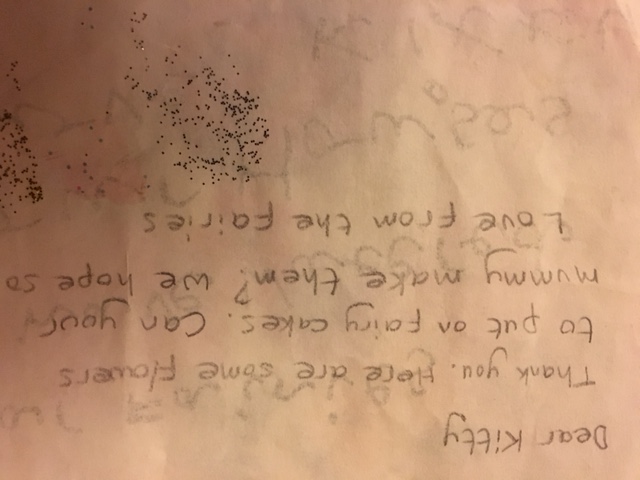 Dear Kitty
Thank you. Here are some flowers
to put on fairy cakes. Can your
mummy make them? We hope so
Love from the fairies